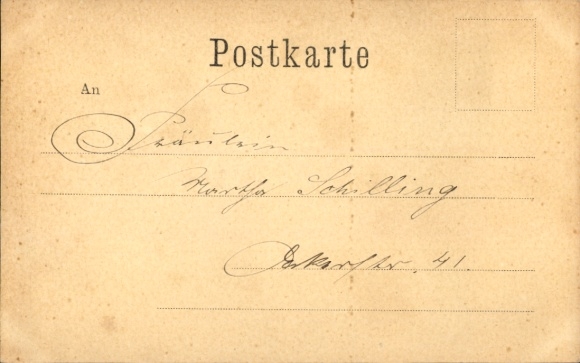 Postkarte
An
Fräulein
Martha Schilling
41.